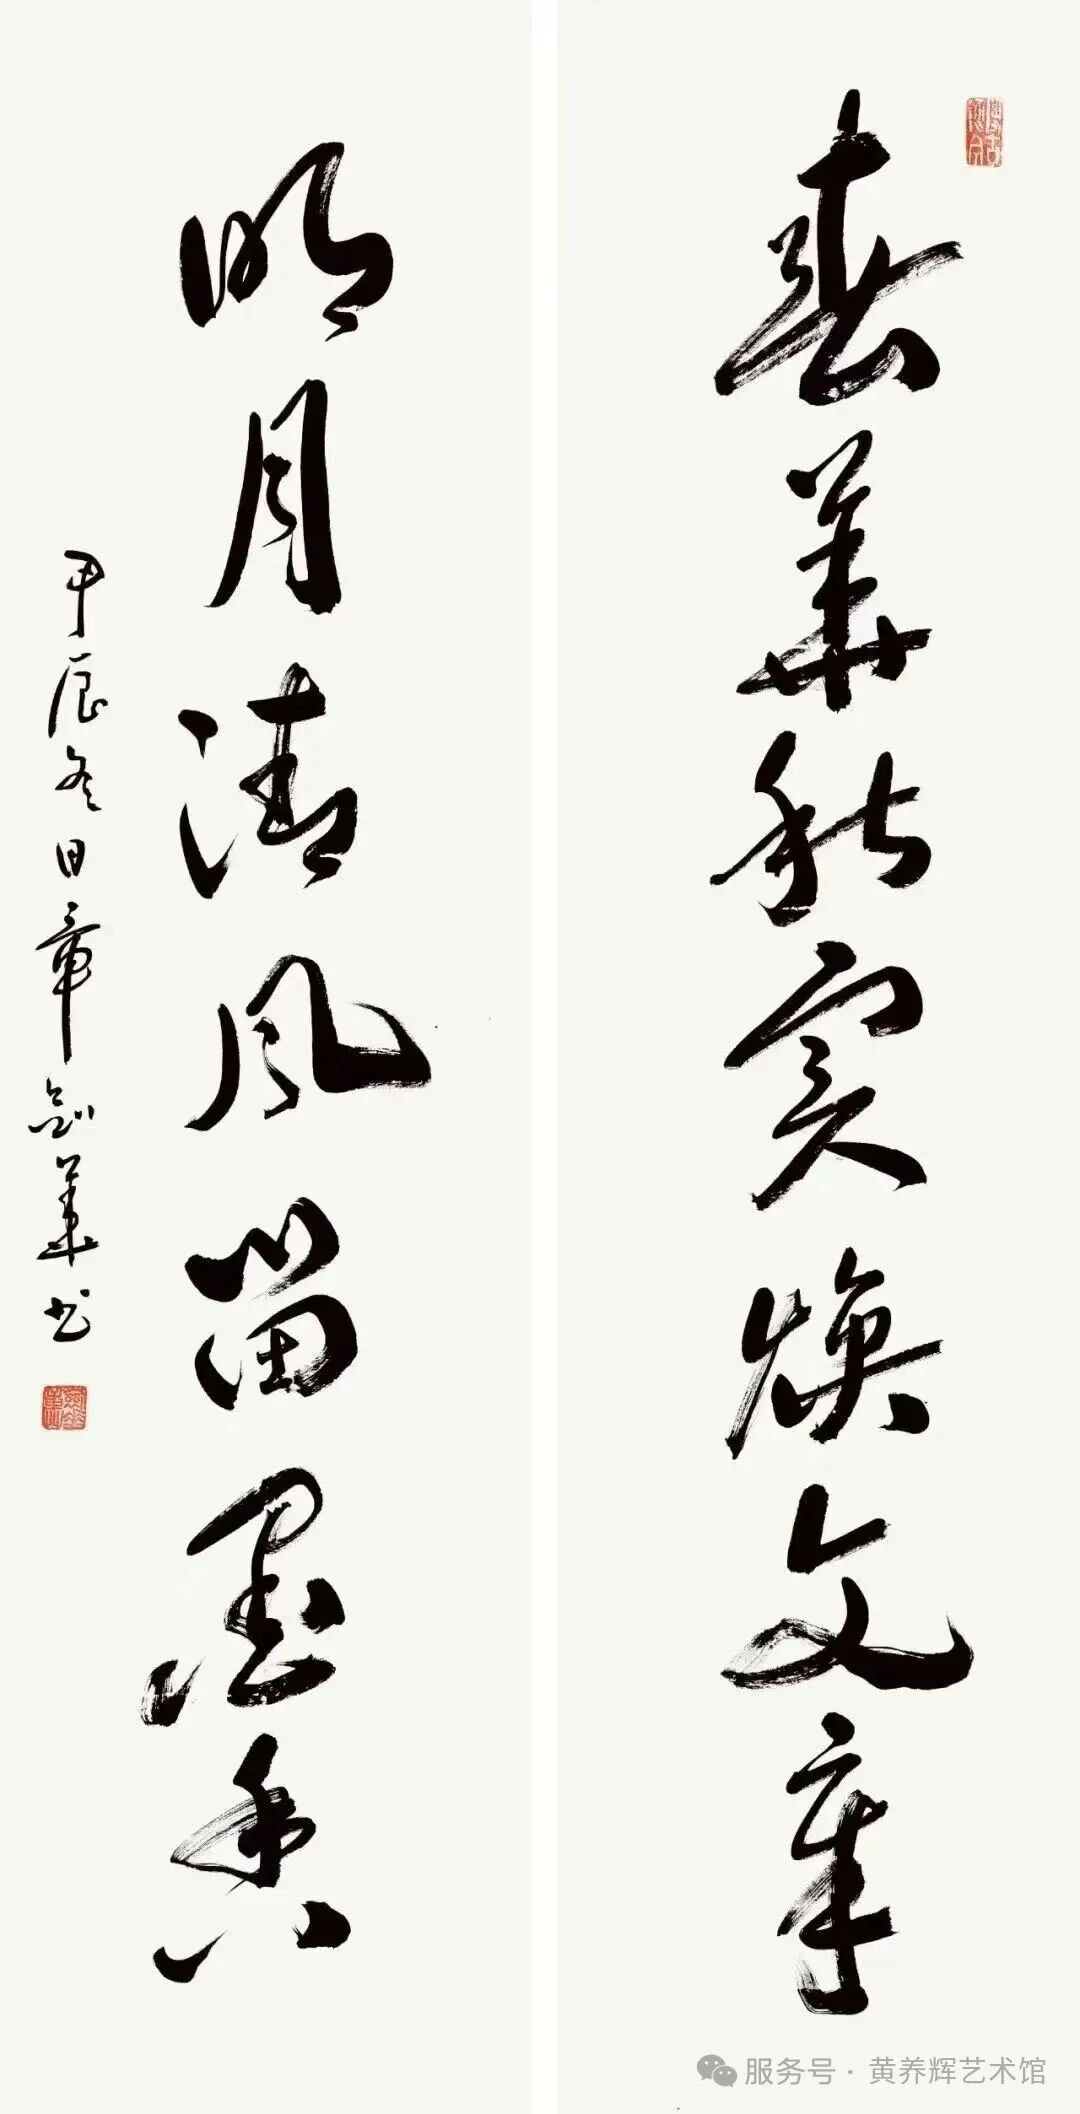 春華秋实焕文章
明月清风留墨香
甲辰冬日章剑華书
服务号·黄养辉艺术馆